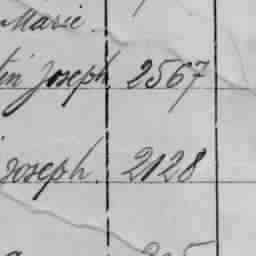 Marie
Joseph 2567
Joseph. 2128